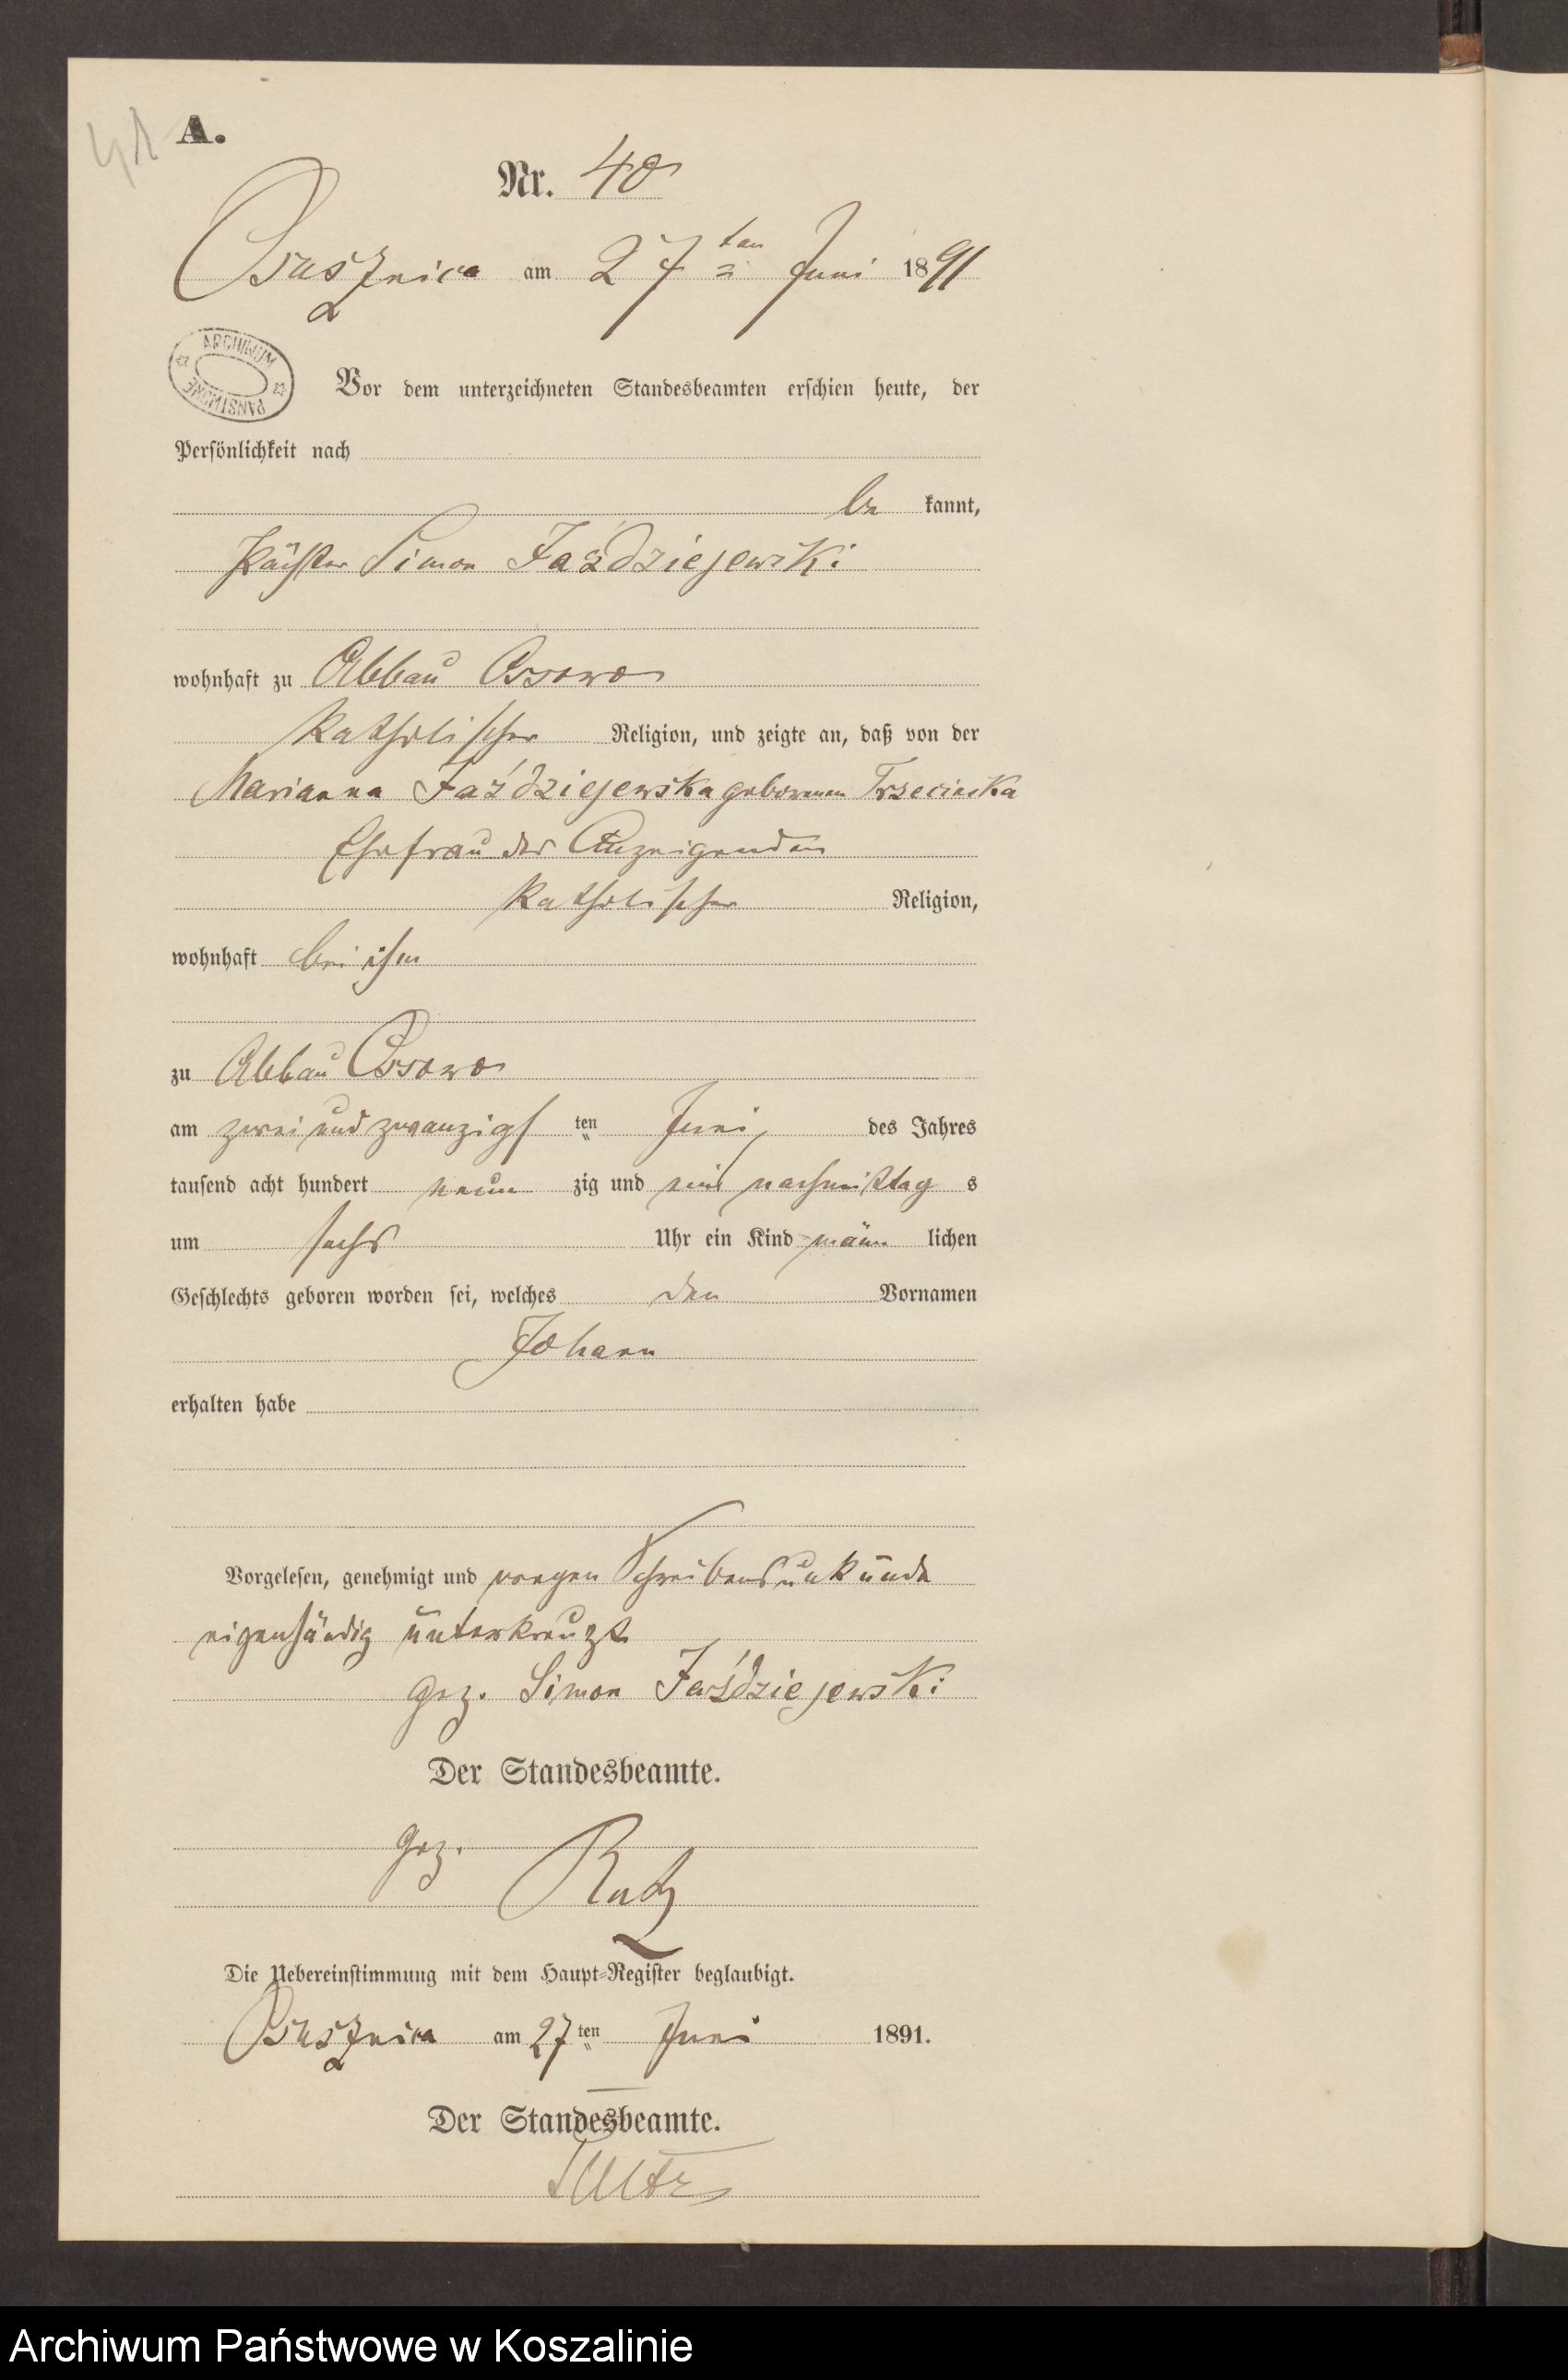 A.
Nr. 40
Borzyszkowy am 27ten Juni 1891
ARCHIWUM PAŃSTWOWE
Vor dem unterzeichneten Standesbeamten erschien heute, der
Persönlichkeit nach
be kannt,
Pächter Simon Jaździejewski
wohnhaft zu Abbau Ossowo
katholischer Religion, und zeigte an, daß von der
Marianna Jaździejewska geborenen Trzecinska
Ehefrau des Anzeigenden
katholischer Religion,
wohnhaft bei ihm
zu Abbau Ossowo
am zwei und zwanzigs ten Juni, des Jahres
tausend acht hundert neun zig und eins nachmittag s
um sechs Uhr ein Kind männ lichen
Geschlechts geboren worden sei, welches den Vornamen
Johann
erhalten habe
Vorgelesen, genehmigt und wegen Schreibensunkunde
eigenhändig unterkreuzt
gez. Simon Jaździejewski
Der Standesbeamte.
gez.
Die Uebereinstimmung mit dem Haupt-Register beglaubigt.
am 27ten Juni 1891.
Der Standesbeamte.
Archiwum Państwowe w Koszalinie